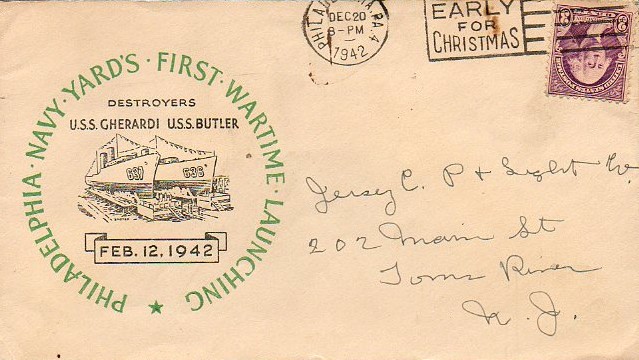 PHILADELPHIA, PA. 4
DEC 20
8-PM
1942
EARLY
FOR
CHRISTMAS
3
PHILADELPHIA · NAVY · YARD'S · FIRST · WARTIME · LAUNCHING
DESTROYERS
U.S.S. GHERARDI U.S.S. BUTLER
637 636
FEB. 12, 1942
Jersey C. P & Light Co.
202 Main St
Toms River
N. J.